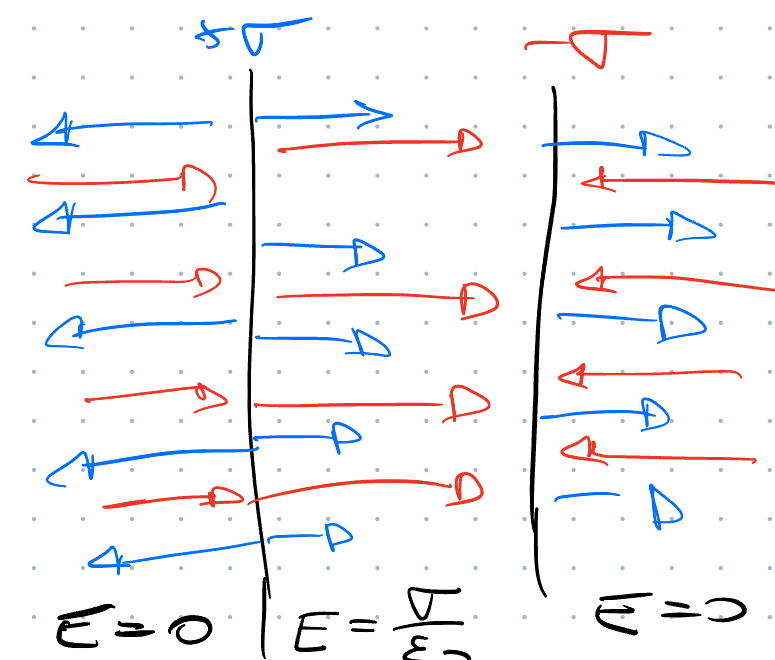 +σ -σ
E = 0 E = σ/ε₀ E = 0